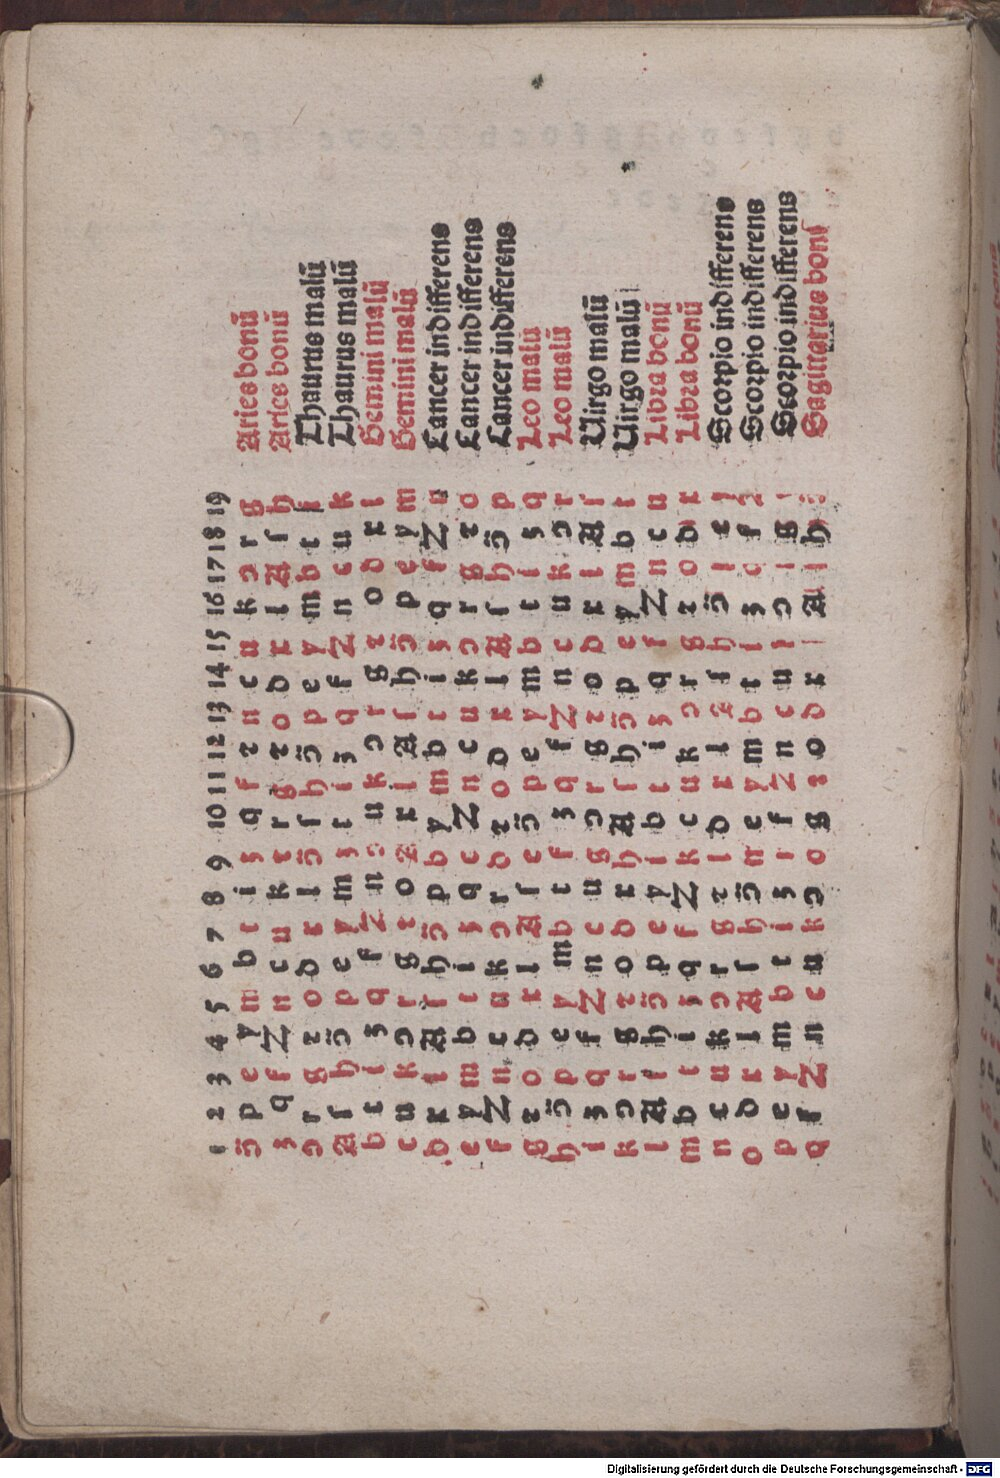 1 2 3 4 5 6 7 8 9 10 11 12 13 14 15 16 17 18 19
ɔ̄ p e y m b t i s q f z n c u k ɔ r g Aries bonū
s q f Z n c u k t r g z o d x l A ſ h Aries bonū
ɔ r g z o d x l ɔ̄ ſ h ɔ̄ p e y m b t i Thaurus malū
A ſ h ɔ̄ p e y m s t i s q f Z n c u k Thaurus malū
b t i s q f Z n ɔ u k ɔ r g z o d x l Gemini malū
c u k ɔ r g z o A x l A ſ h ɔ̄ p e y m Gemini malū
d x l A ſ h ɔ̄ p b y m b t i s q f Z n Cancer indifferens
e y m b t i s q c Z n c u k ɔ r g z o Cancer indifferens
f Z n c u k ɔ r d z o d x l A ſ h ɔ̄ p Cancer indifferens
g z o d x l A ſ e ɔ̄ p e y m b t i s q Leo malū
h ɔ̄ p e y m b t f s q f Z n c u k ɔ r Leo malū
i s q f Z n c u g ɔ r g z o d x l A ſ Uirgo malū
k ɔ r g z o d x h A ſ h ɔ̄ p e y m b t Uirgo malū
l A ſ h ɔ̄ p e y i b t i s q f Z n c u Libra bonū
m b t i s q f Z k c u k ɔ r g z o d x Libra bonū
n c u k ɔ r g z l d x l ſ h ɔ̄ e y Scorpio indifferens
o d x l A ſ h ɔ̄ n e y m b t i s f Z Scorpio indifferens
p e y m b t i s f Z n c u ɔ g Scorpio indifferens
q f Z n c u k ɔ o g z o d x A h Sagittarius boni
Digitalisierung gefördert durch die Deutsche Forschungsgemeinschaft - DFG